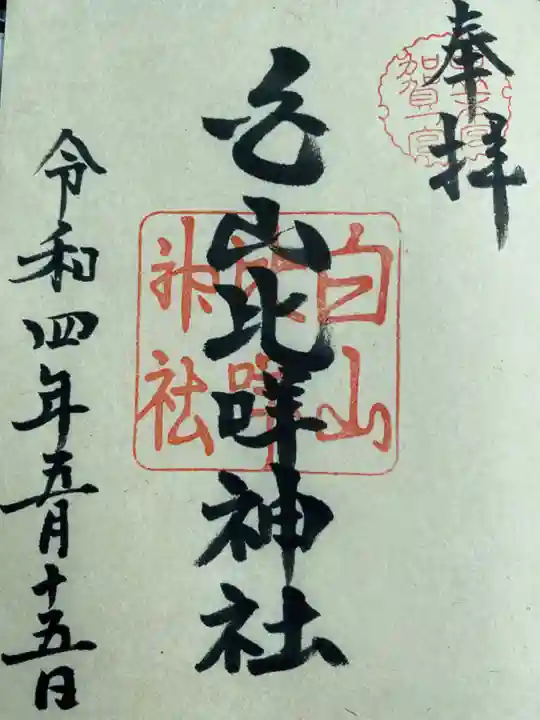 奉拝
白山比咩神社
令和四年五月十五日
白山
比咩
神社
加賀一宮